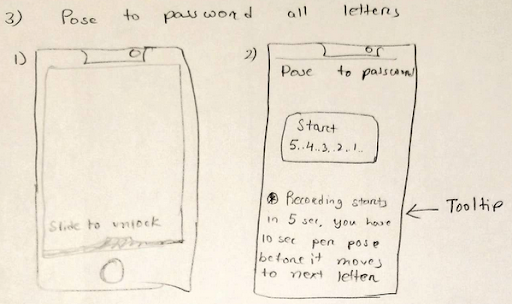 3) Pose to password all letters
1)
Slide to unlock
2)
Pose to password
Start
5..4..3..2..1..
Recording starts
in 5 sec, you have
10 sec per pose
before it moves
to next letter
Tooltip